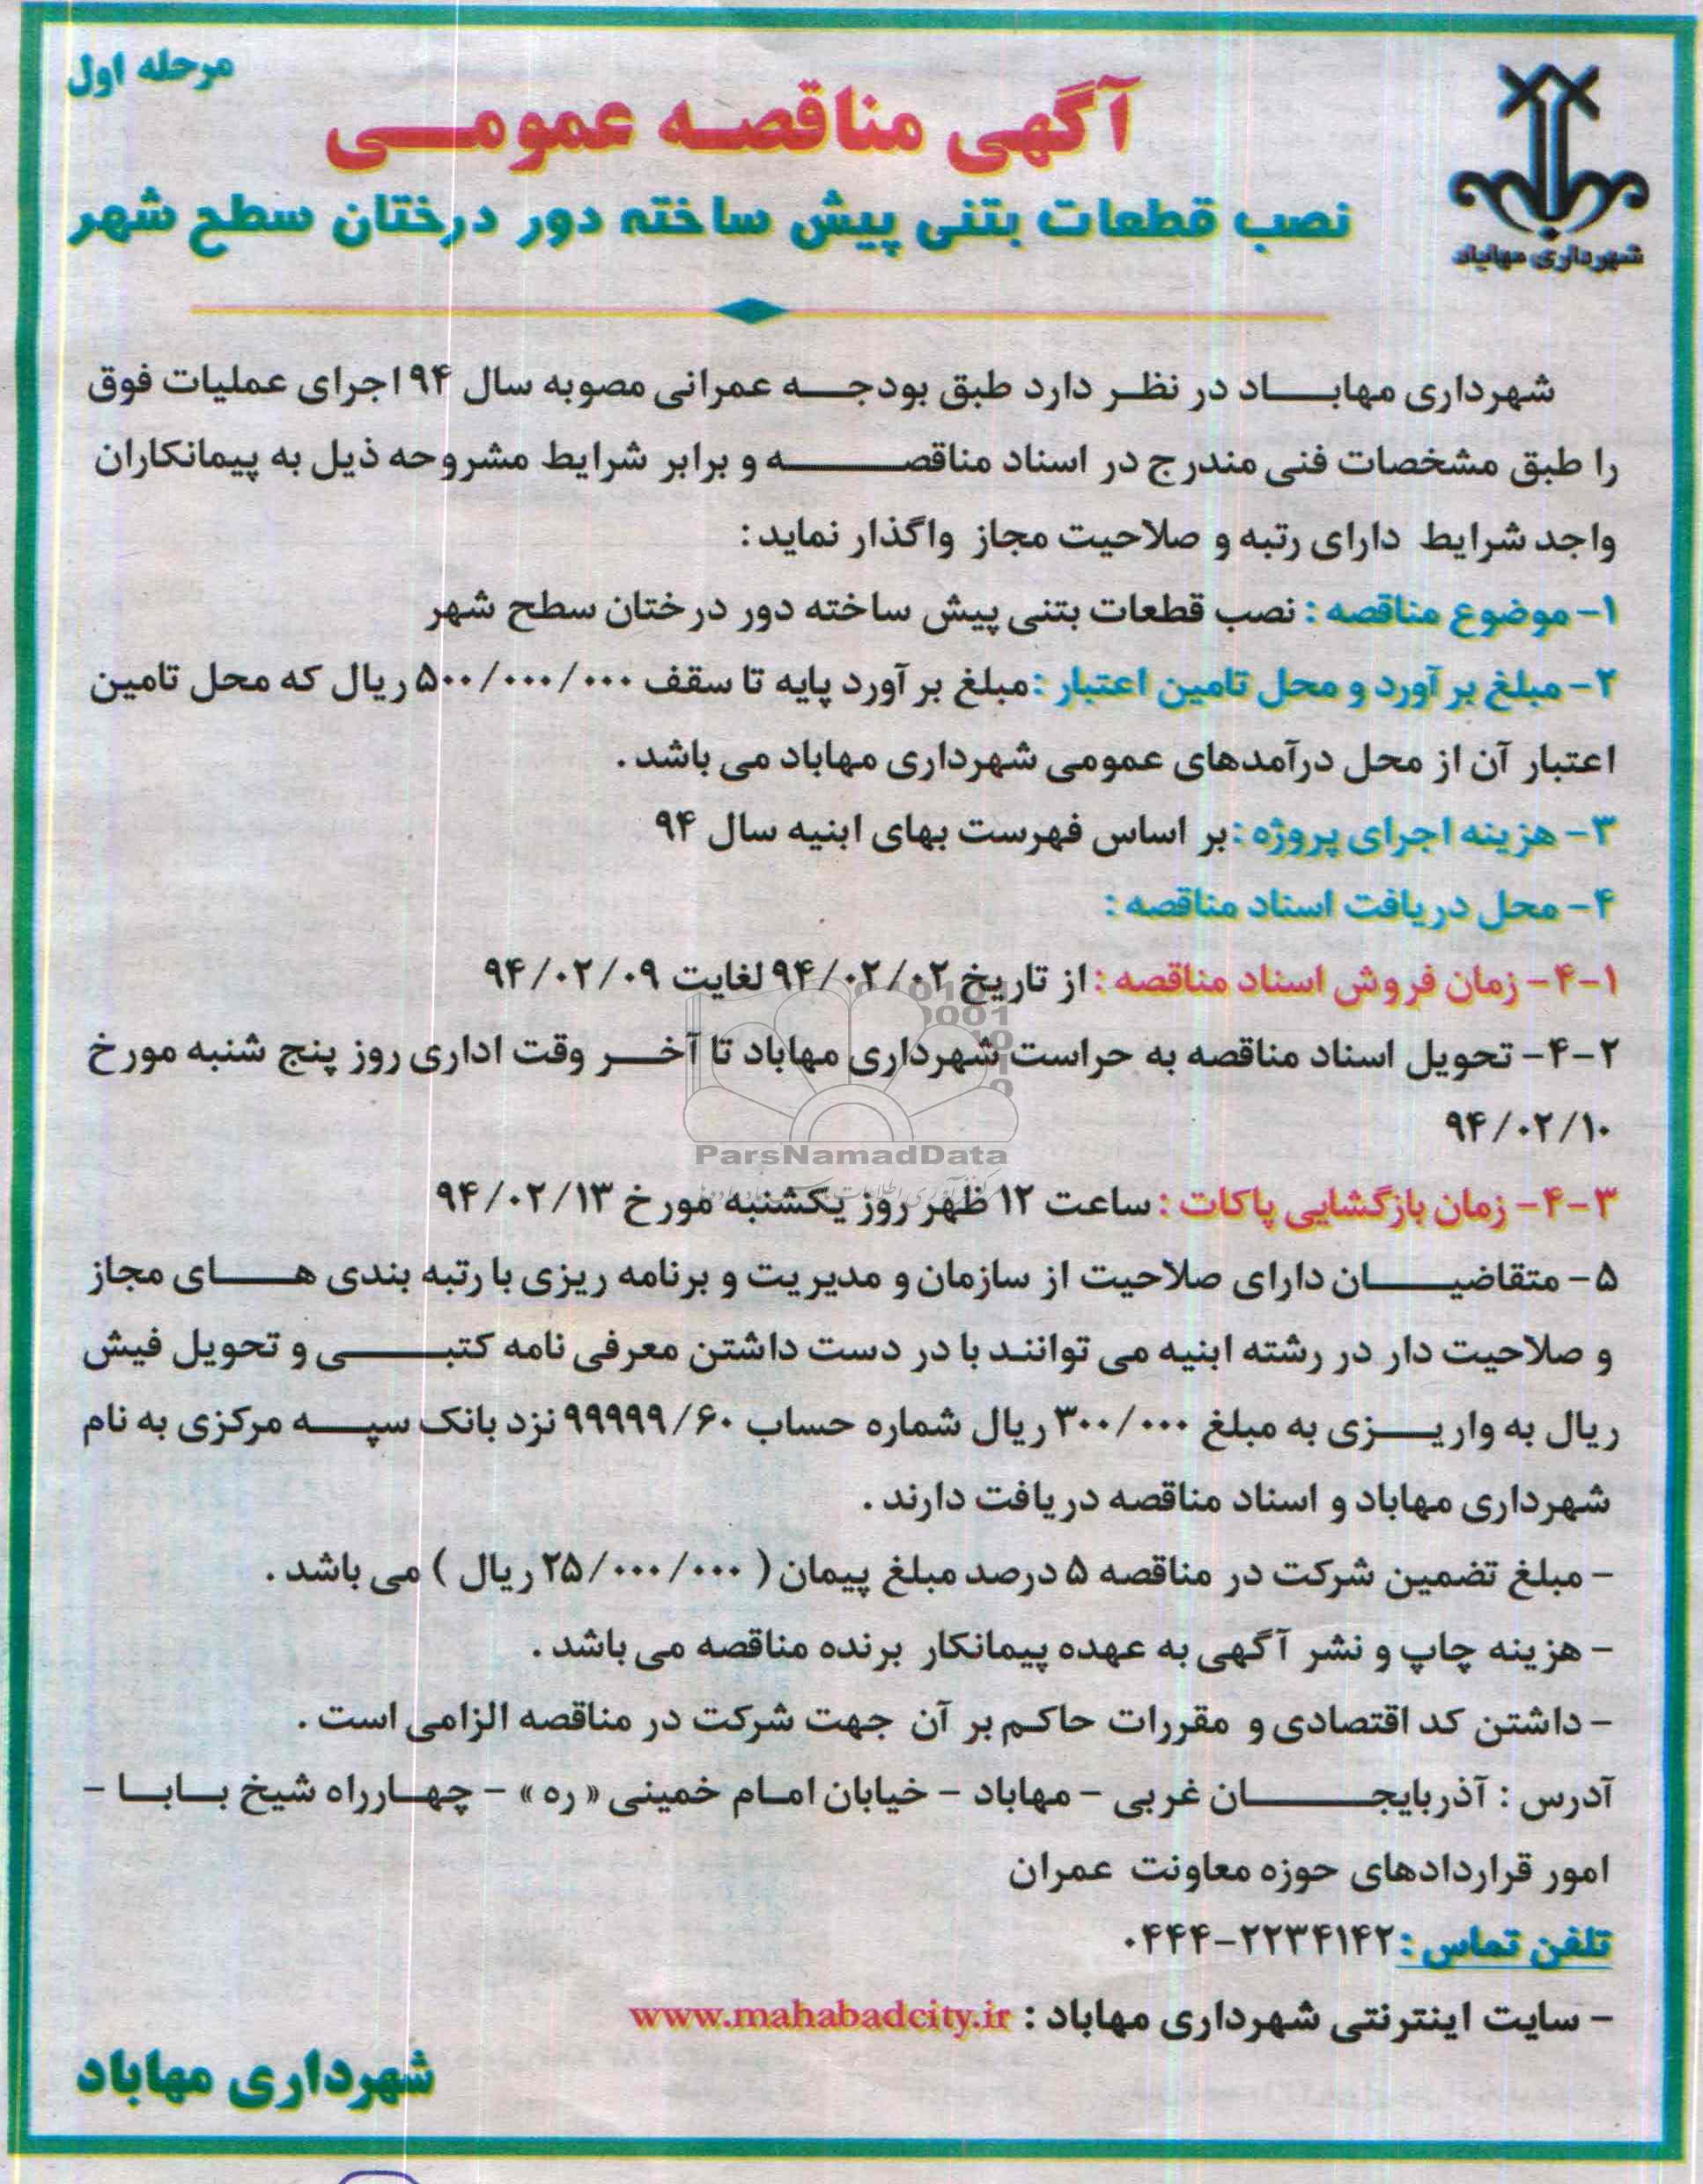 مرحله اول
آگهی مناقصه عمومی
نصب قطعات بتنی پیش ساخته دور درختان سطح شهر
شهرداری مهاباد
شهرداری مهاباد در نظر دارد طبق بودجه عمرانی مصوبه سال ۹۴ اجرای عملیات فوق
را طبق مشخصات فنی مندرج در اسناد مناقصه و برابر شرایط مشروحه ذیل به پیمانکاران
واجد شرایط دارای رتبه و صلاحیت مجاز واگذار نماید :
۱- موضوع مناقصه : نصب قطعات بتنی پیش ساخته دور درختان سطح شهر
۲- مبلغ بر آورد و محل تامین اعتبار : مبلغ بر آورد پایه تا سقف ۵۰۰/۰۰۰/۰۰۰ ریال که محل تامین
اعتبار آن از محل درآمدهای عمومی شهرداری مهاباد می باشد .
۳- هزینه اجرای پروژه : بر اساس فهرست بهای ابنیه سال ۹۴
۴- محل دریافت اسناد مناقصه :
۴-۱- زمان فروش اسناد مناقصه : از تاریخ ۹۴/۰۲/۰۲ لغایت ۹۴/۰۲/۰۹
۴-۲- تحویل اسناد مناقصه به حراست شهرداری مهاباد تا آخر وقت اداری روز پنج شنبه مورخ
۹۴/۰۲/۱۰
ParsNamadData
۴-۳- زمان بازگشایی پاکات : ساعت ۱۲ ظهر روز یکشنبه مورخ ۹۴/۰۲/۱۳
۵- متقاضیان دارای صلاحیت از سازمان و مدیریت و برنامه ریزی با رتبه بندی های مجاز
و صلاحیت دار در رشته ابنیه می توانند با در دست داشتن معرفی نامه کتبی و تحویل فیش
ریال به واریزی به مبلغ ۳۰۰/۰۰۰ ریال شماره حساب ۹۹۹۹۹/۶۰ نزد بانک سپه مرکزی به نام
شهرداری مهاباد و اسناد مناقصه دریافت دارند .
- مبلغ تضمین شرکت در مناقصه ۵ درصد مبلغ پیمان ( ۲۵/۰۰۰/۰۰۰ ریال ) می باشد .
- هزینه چاپ و نشر آگهی به عهده پیمانکار برنده مناقصه می باشد .
- داشتن کد اقتصادی و مقررات حاکم بر آن جهت شرکت در مناقصه الزامی است .
آدرس : آذربایجان غربی - مهاباد - خیابان امام خمینی « ره » - چهارراه شیخ بابا -
امور قراردادهای حوزه معاونت عمران
تلفن تماس : ۲۲۳۴۱۴۲-۰۴۴۴
- سایت اینترنتی شهرداری مهاباد : www.mahabadcity.ir
شهرداری مهاباد